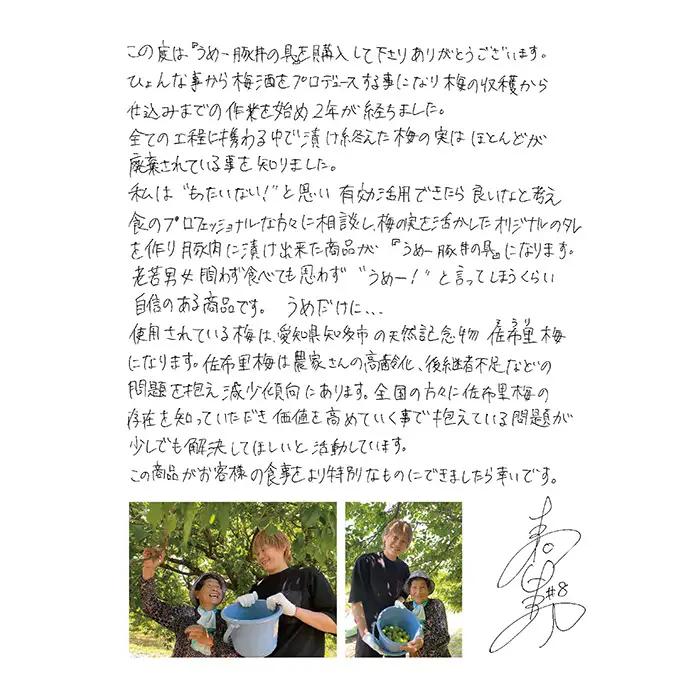 この度は『うめー豚丼の具』を購入して下さりありがとうございます。
ひょんな事から梅酒をプロデュースする事になり梅の収穫から
仕込みまでの作業を始め2年が経ちました。
全ての工程に携わる中で漬け終えた梅の実はほとんどが
廃棄されている事を知りました。
私は"もったいない！"と思い有効活用できたら良いなと考え
食のプロフェッショナルな方々に相談し、梅の実を活かしたオリジナルのタレ
を作り豚肉に漬け出来た商品が『うめー豚丼の具』になります。
老若男女問わず食べても思わず"うめー！"と言ってしまうくらい
自信のある商品です。 うめだけに、、、
使用されている梅は、愛知県知多市の天然記念物 佐布里梅
そうり
になります。佐布里梅は農家さんの高齢化、後継者不足などの
問題を抱え減少傾向にあります。全国の方々に佐布里梅の
存在を知っていただき価値を高めていく事で抱えている問題が
少しでも解決してほしいと活動しています。
この商品がお客様の食事をより特別なものにできましたら幸いです。
#8